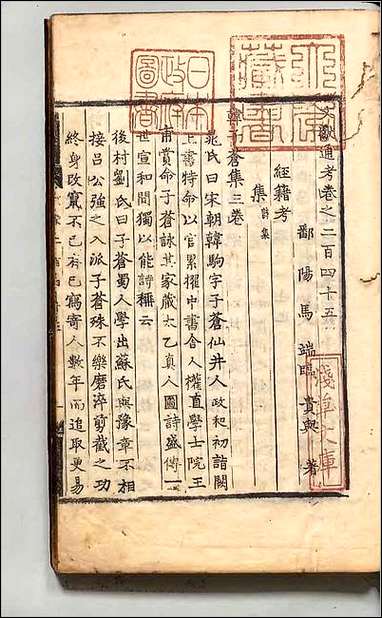 文獻通考卷之二百四十五
鄱陽馬端臨貴與著
經籍考
集 詩集
韓子蒼集三卷
晁氏曰宋朝韓駒字子蒼仙井人政和初詣闕
上書特命以官累擢中書舍人權直學士院王
甫嘗命子蒼詠其家藏太乙真人圖詩盛傳一
世宣和間獨以能詩稱云
後村劉氏曰子蒼蜀人學出蘇氏與豫章不相
接呂公強之入派子蒼殊不樂磨淬剪截之功
終身改竄不已有已寫寄人數年而追取更易
日本
政府
圖書
淺草文庫